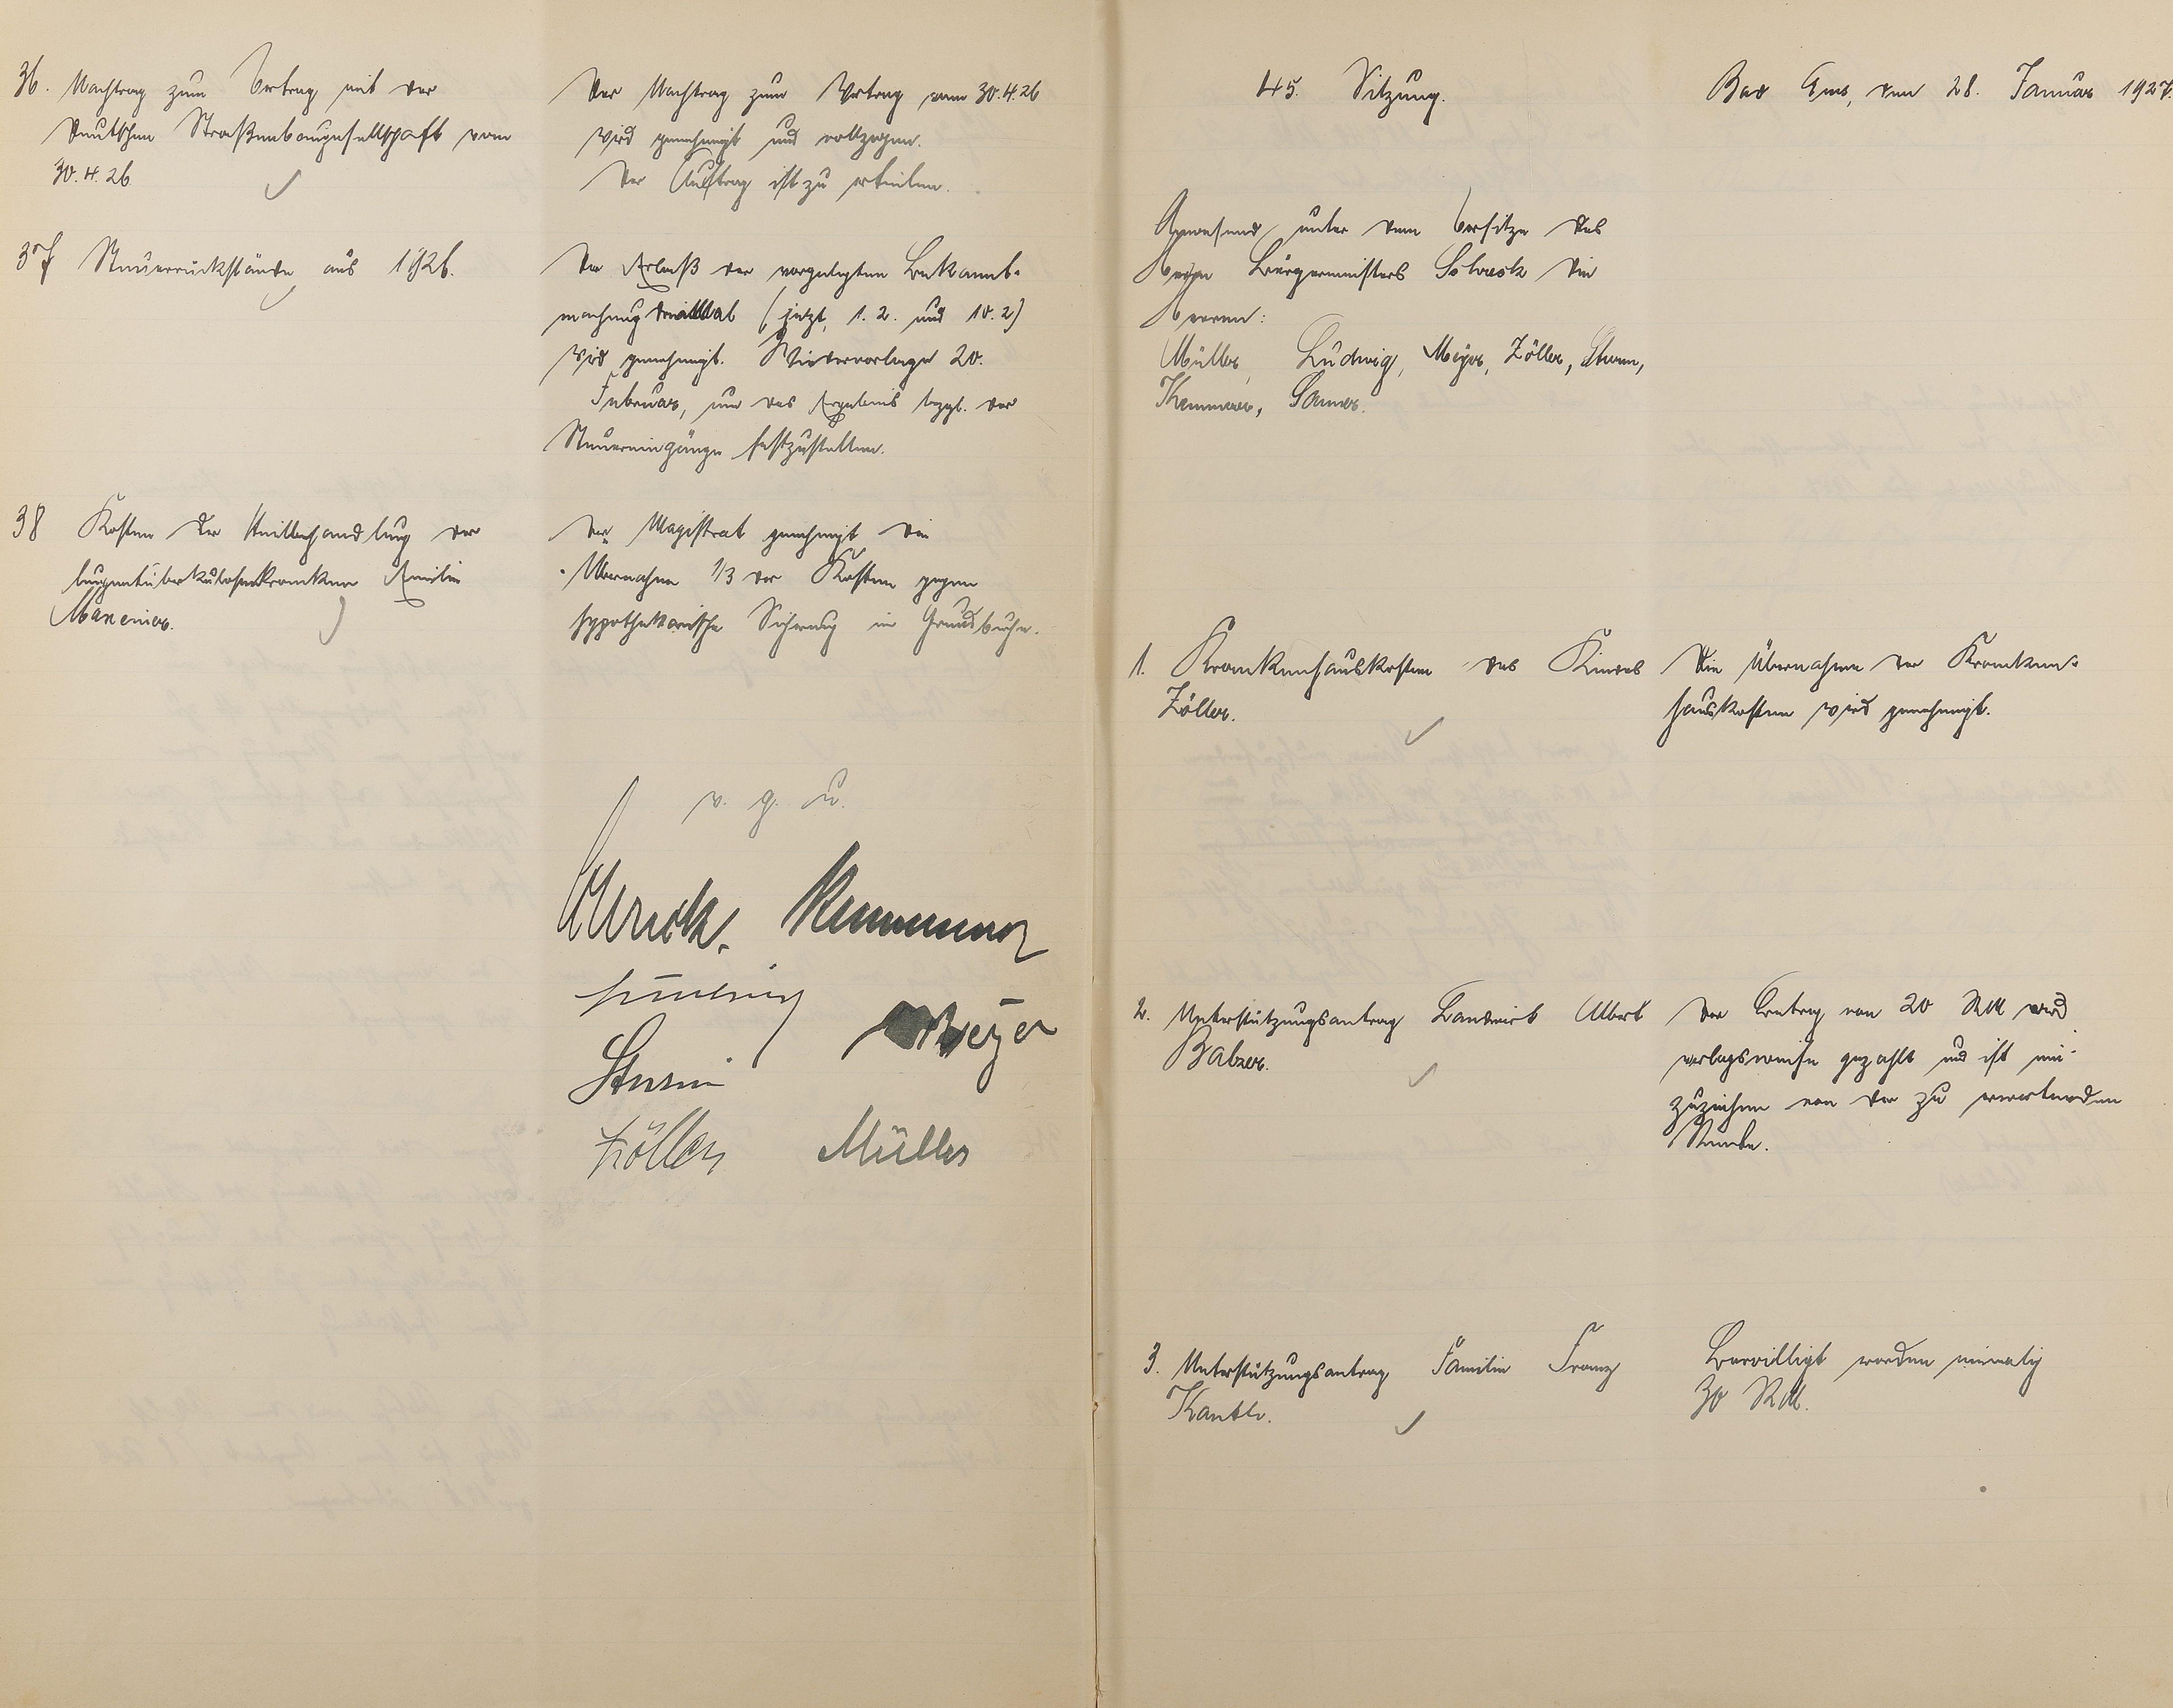 36. Nachtrag zum Vertrag mit der
Deutschen Straßenbaugesellschaft vom
30.4.26
Der Nachtrag zum Vertrag vom 30.4.26
wird genehmigt und vollzogen.
Der Auftrag ist zu erteilen.
37 Steuerrückstände aus 1926.
Der Erlaß der vorgelegten Bekannt-
machung (jetzt, 1.2. und 10.2)
wird genehmigt. Wiedervorlage 20.
Februar, um das Ergebnis bezgl. der
Steuereingänge festzustellen.
38 Kosten der Heilbehandlung der
lungentuberkulosekranken Emilie
Der Magistrat genehmigt die
Übernahme 1/3 der Kosten gegen
hypothekarische Sicherung im Grundbuche.
v. g. u.
Schreck. Kemmerer
Ludwig Meyer
Sturm
Zöller Müller
45. Sitzung.
Bad Ems, den 28. Januar 1927.
Anwesend unter dem Vorsitze des
Herrn Bürgermeisters Schreck die
Herren:
Müller, Ludwig, Meyer, Zöller, Sturm,
Kemmerer,
1. Krankenhauskosten des Kindes
Zöller.
Die Übernahme der Kranken-
hauskosten wird genehmigt.
2. Unterstützungsantrag Landwirt Albert
Balzer.
Der Betrag von 20 RM wird
verlagsweise gezahlt und ist ein-
zuziehen von der zu erwartenden
3. Unterstützungsantrag Familie Franz
Bewilligt werden einmalig
30 RM.